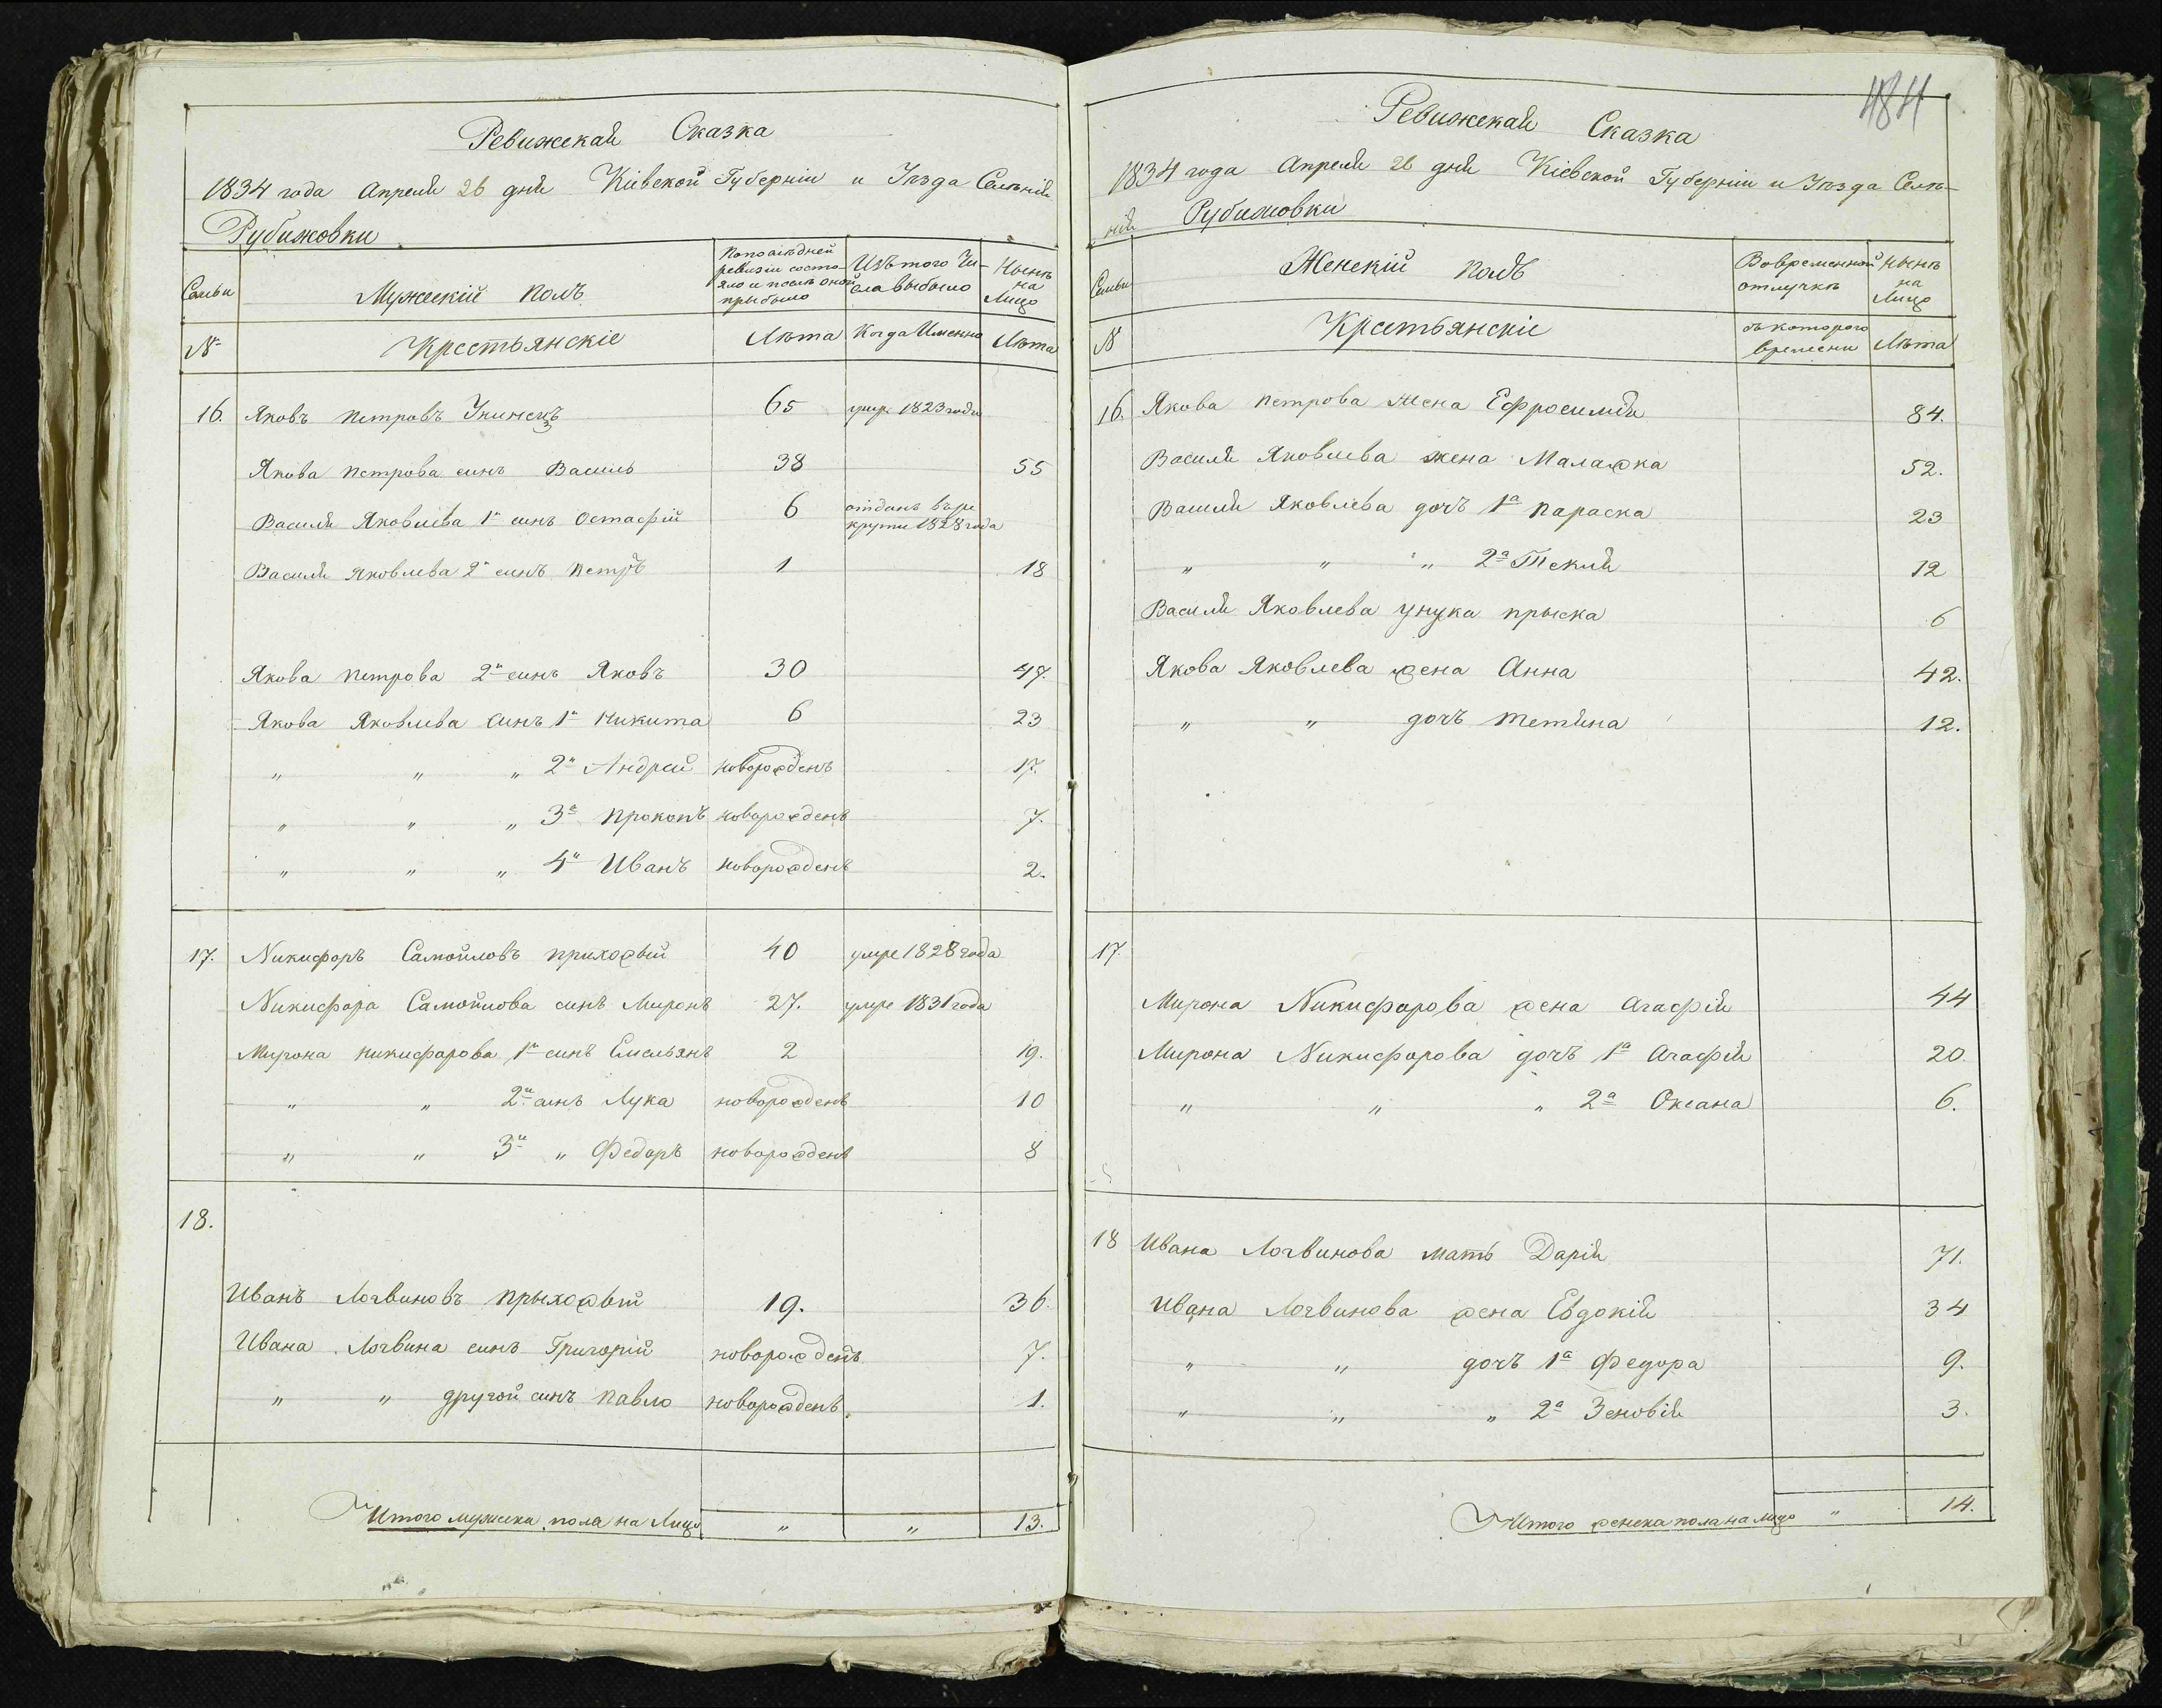 Ревижская Сказка
1834 года Апреля 26 дня Кіевской Губерніи и Уѣзда Селѣнія
Рубижовки
Семьи
Мужескій полъ
По последней ревизіи состояло и послѣ оной прибыло
Изъ того Числа выбыло
Нынѣ на Лицо
№
Крестьянскіе
Лѣта
Когда Именно
Лѣта
16. Яковъ Петровъ 65 умре 1823 года
Якова Петрова синъ Василь 38 55
Василя Яковлева 1й синъ Остафій 6 отданъ въ рекрути 1828 года
Василя Яковлева 2й синъ Петръ 1 18
Якова Петрова 2й синъ Яковъ 30 47.
Якова Яковлева синъ 1й Никита 6 23
" " " 2й Андрей новорожденъ 17.
" " " 3й Прокопъ новорожденъ 7.
" " " 4й Иванъ новорожденъ 2.
17. Никифоръ Самойловъ прихожій 40 умре 1828 года
Никифора Самойлова синъ Миронъ 27. умре 1831 года
Мирона Никифорова 1й синъ Емельянъ 2 19.
" " 2й синъ Лука новорожденъ 10
" " 3й " Федоръ новорожденъ 8
18.
Иванъ Логвиновъ прыхожій 19. 36.
Ивана Логвина синъ Григорій новорожденъ 7.
" " другой синъ Павло новорожденъ. 1.
Итого мужеска пола на Лицо " " 13.
484
Ревижская Сказка
1834 года Апреля 26 дня Кіевской Губерніи и Уѣзда Селѣ-
нія Рубижовки
Семьи
Женскій полъ
Во временной отлучкѣ
Нынѣ на Лицо
№
Крестьянскіе
съ которого времени
Лѣта
16. Якова Петрова жена Ефросинія 84.
Василя Яковлева жена Малажка 52.
Василя Яковлева дочъ 1а Параска 23
" " " 2а Текля 12
Василя Яковлева унука Прыска 6
Якова Яковлева жена Анна 42.
" " дочъ Тетяна 12.
17.
Мирона Никифорова жена Агафія 44
Мирона Никифорова дочъ 1а Агафія 20.
" " " 2а Оксана 6.
18 Ивана Логвинова мать Дарія 71.
Ивана Логвинова жена Евдокія 34
" " дочъ 1а Федора 9.
" " " 2а Зеновія 3.
Итого женска пола на лицо " 14.